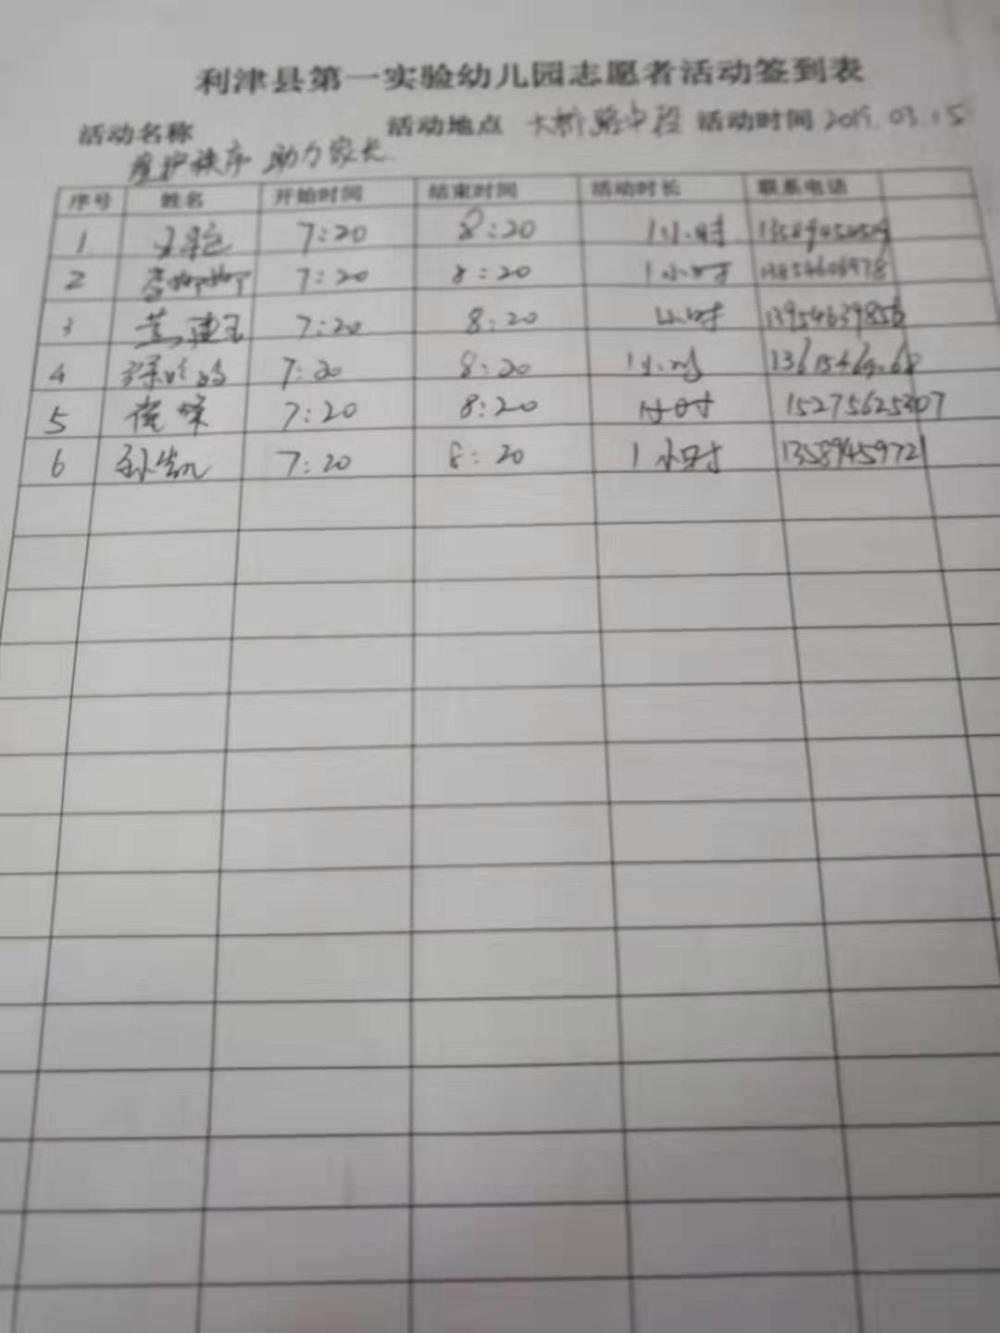 利津县第一实验幼儿园志愿者活动签到表
活动名称 活动地点 大桥路中段 活动时间 2019.03.15
维护秩序 助力家长
序号 姓名 开始时间 结束时间 活动时长 联系电话
1 7:20 8:20 1小时
2 7:20 8:20 1小时 13854606978
3 7:20 8:20 1小时 13954639856
4 7:20 8:20 1小时
5 崔 7:20 8:20 1小时 15275625307
6 孙凯 7:20 8:20 1小时 13589459721